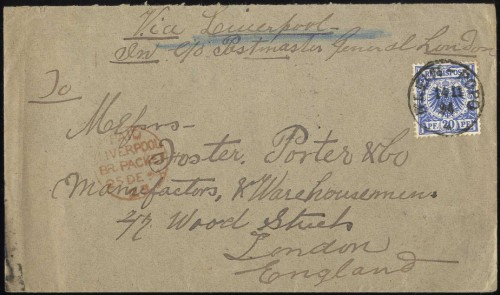 Via Liverpool
In c/o Postmaster General London
To
Messrs
Foster, Porter & Co
Manufactors, & Warehousemen
47 Wood Street
London
England
LIVERPOOL
BR. PACKET
PF 20 PF